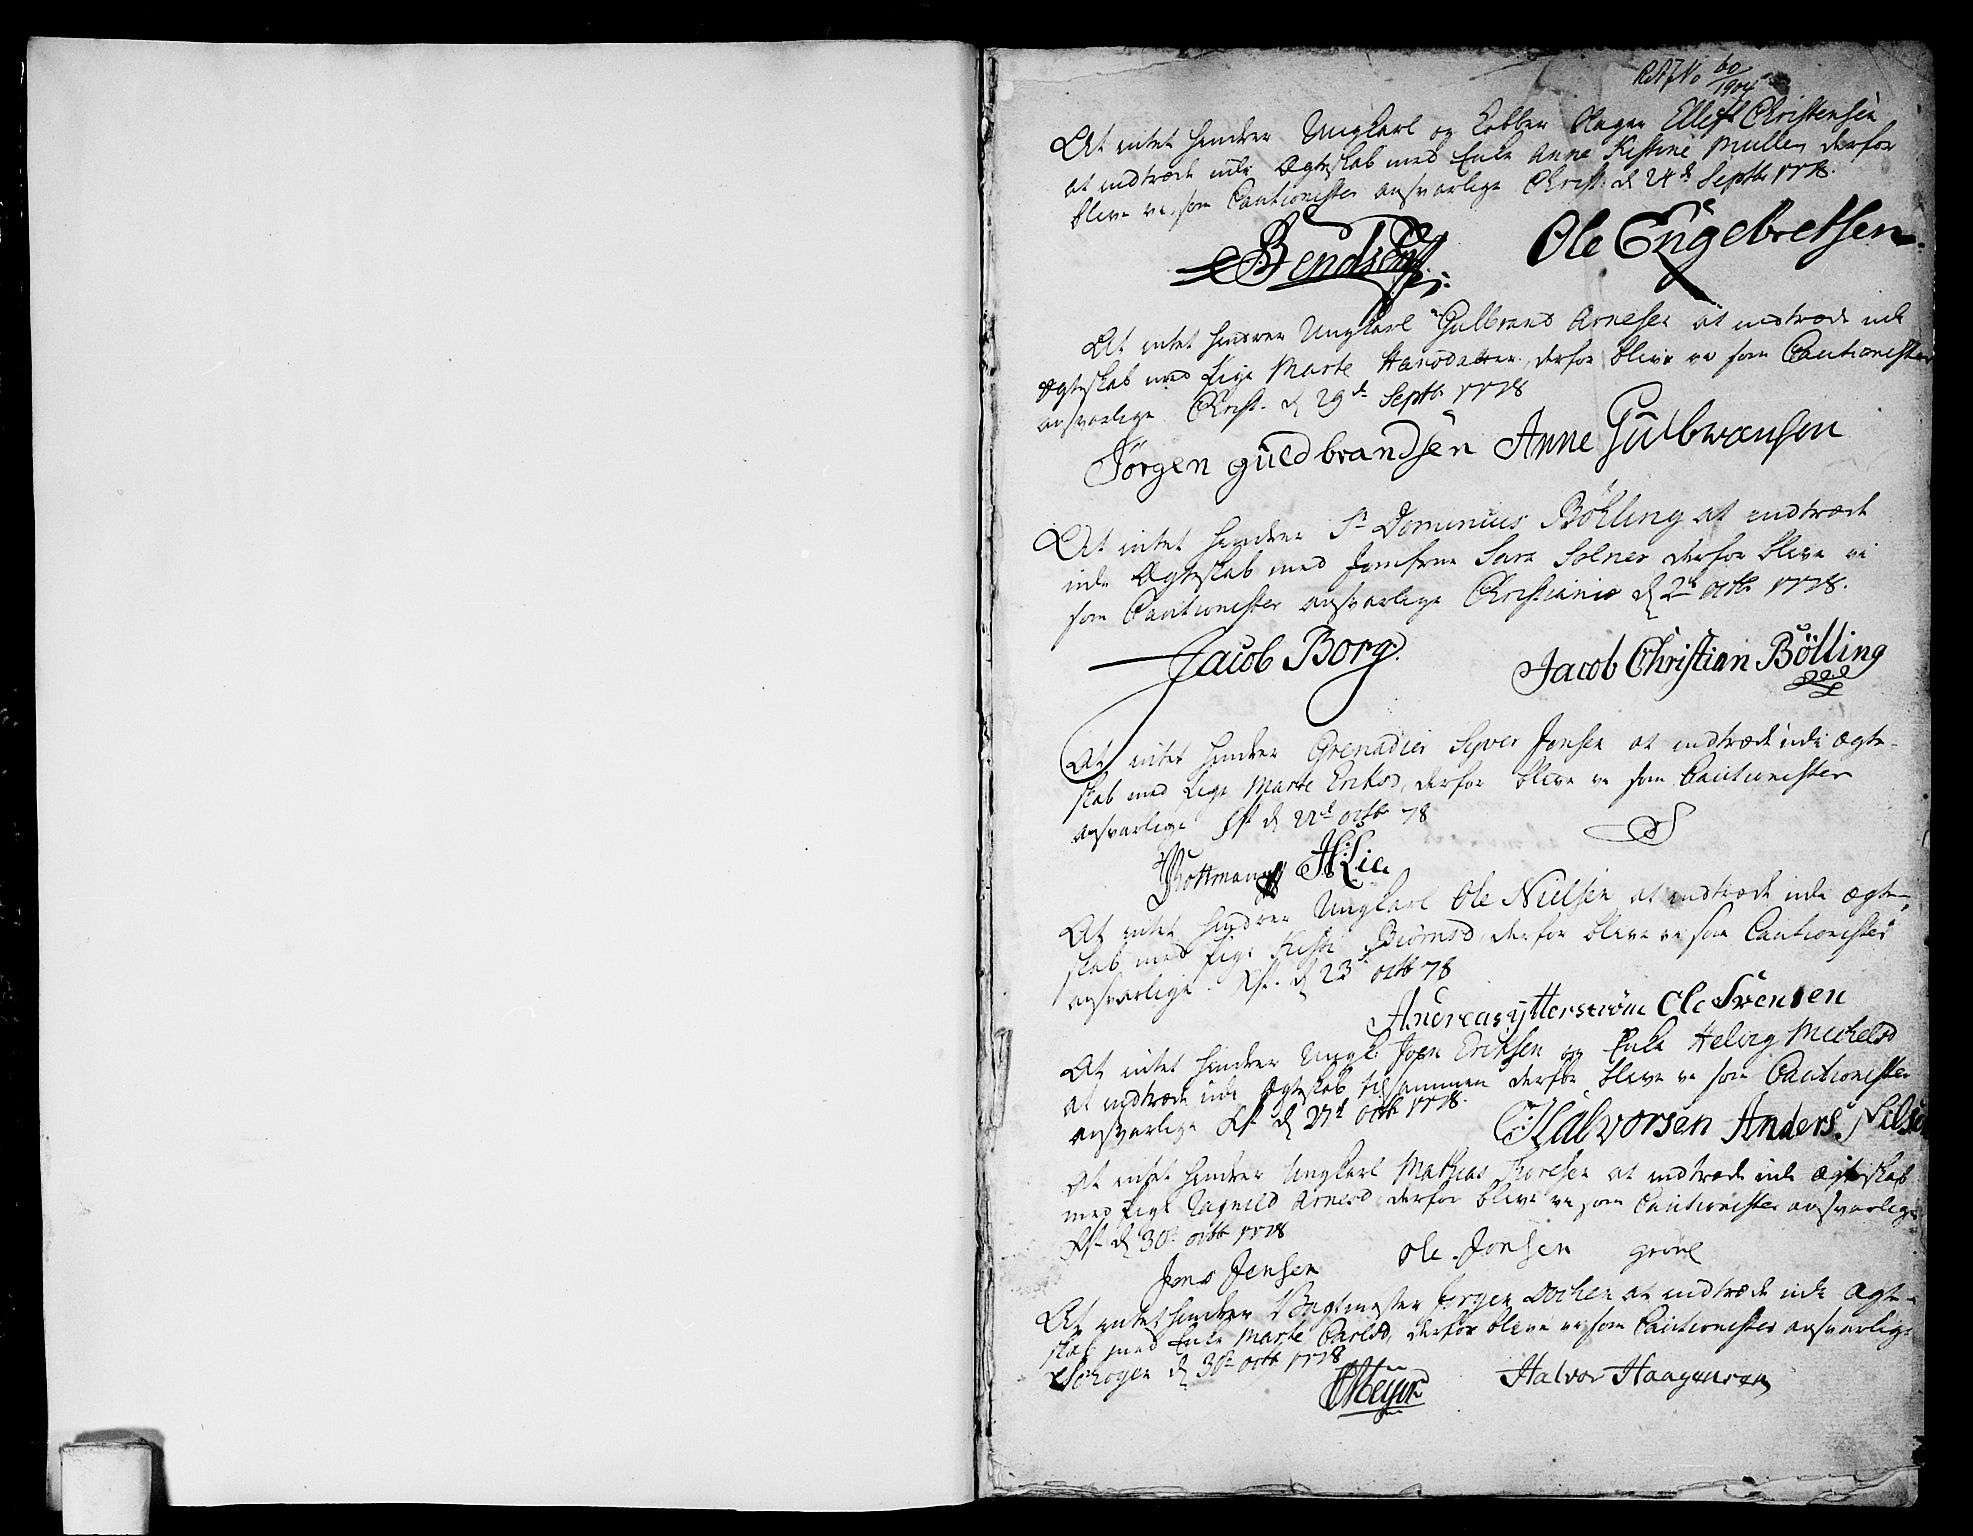 RA J No 60/1904
At intet hindrer Ungkarl og Kobber Slager Ellef Christensen
at indtræde udi Ægteskab med Enke Anne Kistine Muller derfor
blive vi som Cautionister answarlige Christ. d 24de Septbr 1778.
Bendsen Ole Engebretsen
At intet hindrer Ungkarl Gulbrand Arnesen at indtræde udi
Ægteskab med Pige Marte Hansdatter, derfor blive vi som Cautionister
answarlige Christ. d 29de Septbr 1778
Jørgen guldbrandsen Anne Gulbransen
At intet hindrer Sr Dominicus Bölling at indtræde
udi Ægteskab med Jomfrue Sara Solner derfor blive vi
som Cautionister answarlige Christiania d 2de Octbr 1778.
Jacob Borg. Jacob Christian Bölling
At intet hindrer Grenadier Syver Jonsen at indtræde udi Ægte-
skab med Pige Marte Eriksd, derfor blive vi som Cautionister
answarlige d 22de octbr 78
H Lie
At intet hindrer Ungkarl Ole Nielsen at indtræde udi Ægte-
skab med Pige Kisti Biørnsd, derfor blive vi som Cautionister
answarlige d 23de octbr 78
Andreas ytterström Ole Svensen
At intet hindrer Ungk. Joen Eriksen og Enke Helvig Michelsd
at indtræde udi Ægteskab tilsammen derfor blive vi som Cautionister
answarlige d 27de octbr 1778.
Halvorsen Anders Nilsen
At intet hindrer Ungkarl Mathias Thoresen at indtræde udi Ægteskab
med Pige Ragnild Arnesd, derfor blive vi som Cautionister answarlige
d 30te octbr 1778
Jens Jensen Ole Jonsen gröne
At intet hindrer Vagtmester Jørgen Docken at indtræde udi Ægte-
skab med Enke Marte Carlsd, derfor blive vi som Cautionister answarlig
d 30te octbr 1778
Meyer Halvor Haagensen